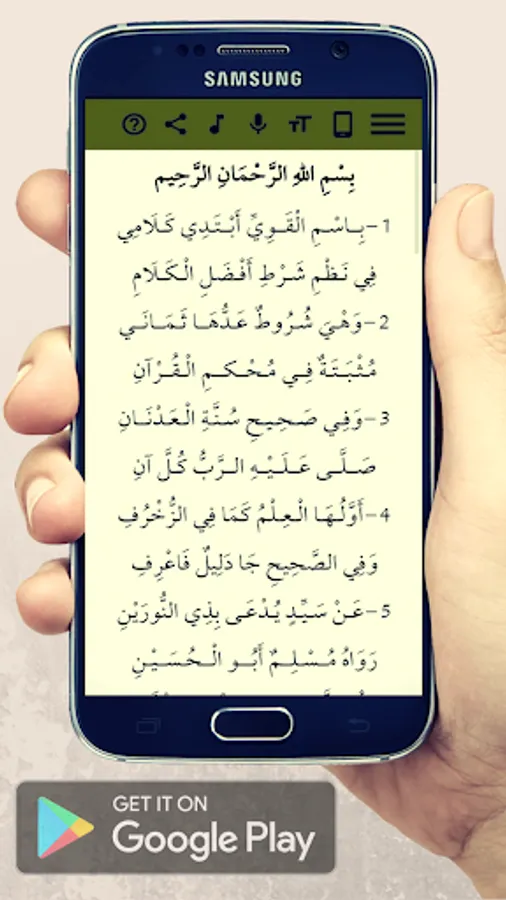 SAMSUNG
بِسْمِ اللهِ الرَّحْمَانِ الرَّحِيم
1-بِـاسْـمِ الْقَـوِيِّ أَبْـتَدِي كَـلَامِي
فِي نَـظْمِ شَـرْطِ أَفْـضَلِ الْـكَـلَامِ
2-وَهْيَ شُـرُوطٌ عَدُّهَـا ثَـمَـانَـي
مُـثْـبَـتَـةٌ فِـي مُـحْـكَـمِ الْـقُـرْآنِ
3-وَفِي صَـحِيـحِ سُنَّةِ الْـعَـدْنَـانِ
صَـلَّـى عَـلَـيْـهِ الـرَّبُّ كُـلَّ آنِ
4-أَوَّلُـهَـا الْـعِـلْمُ كَمَا فِي الزُّخْرُفِ
وَفِي الصَّحِيحِ جَا دَلِيلٌ فَاعْرِفِ
5-عَـنْ سَـيِّدٍ يُـدْعَـى بِذِي النُّورَيْنِ
رَوَاهُ مُـسْـلِـمٌ أَبُـو الْـحُـسَـيْـنِ
GET IT ON
Google Play